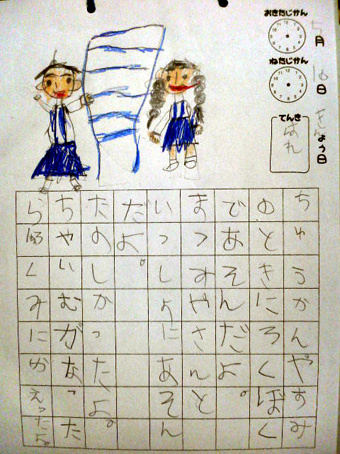 おきたじかん
月
ねたじかん
16日
よう日
てんき
はれ
ちゅうかんやすみ
のときにろくぼく
であそんだよ。
いっしょにあそん
だよ。
たのしかったよ。
ちゃいむがなった
ら
くみにかえったよ。